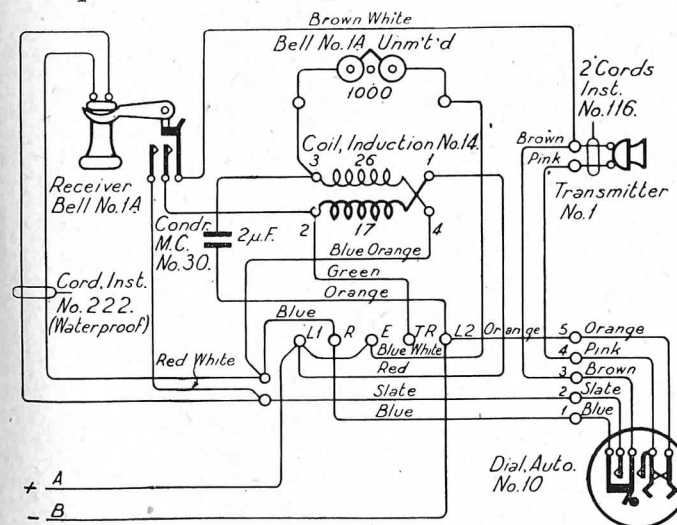 Brown White
Bell No.1A Unm't'd
1000
2 Cords
Inst.
No.116.
Brown
Pink
Transmitter
No.1
Coil, Induction No.14.
3 26 1
2 17 4
Receiver
Bell No.1A
Condr.
M.C.
No.30.
2μ.F.
Blue Orange
Green
Orange
Cord, Inst.
No.222.
(Waterproof)
Blue
L1 R E TR L2 Orange
Blue White
Red
Red White
Slate
Blue
5 Orange
4 Pink
3 Brown
2 Slate
1 Blue
Dial, Auto.
No.10
+ A
- B